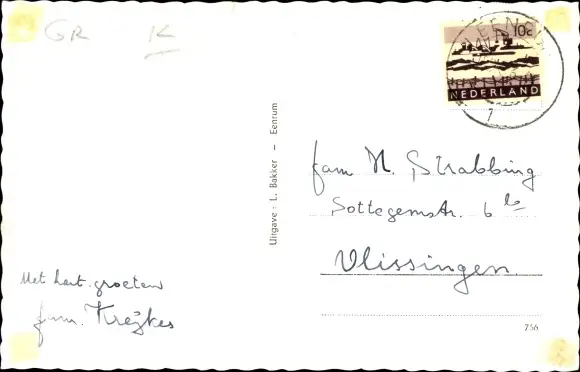 GR K
10c
NEDERLAND
EEN
7
Uitgave : L. Bakker – Eenrum
fam N. Strabbing
Sottegemstr. 6
Vlissingen
Met hart. groeten
fam. Kreijkes
756